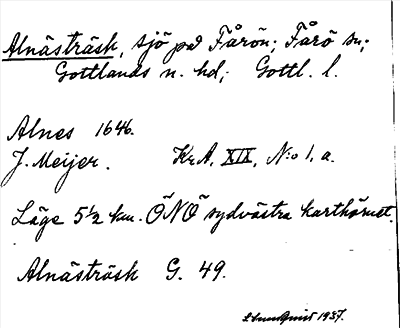 Alnästräsk, sjö på Fårön; Fårö sn;
Gottlands n. hd; Gottl. l.
Alnes 1646.
J. Meijer. Kr.A. XIX, N:o 1, a.
Läge 5½ km. ÖNÖ sydvästra karthörnet.
Alnästräsk G. 49.
1937.